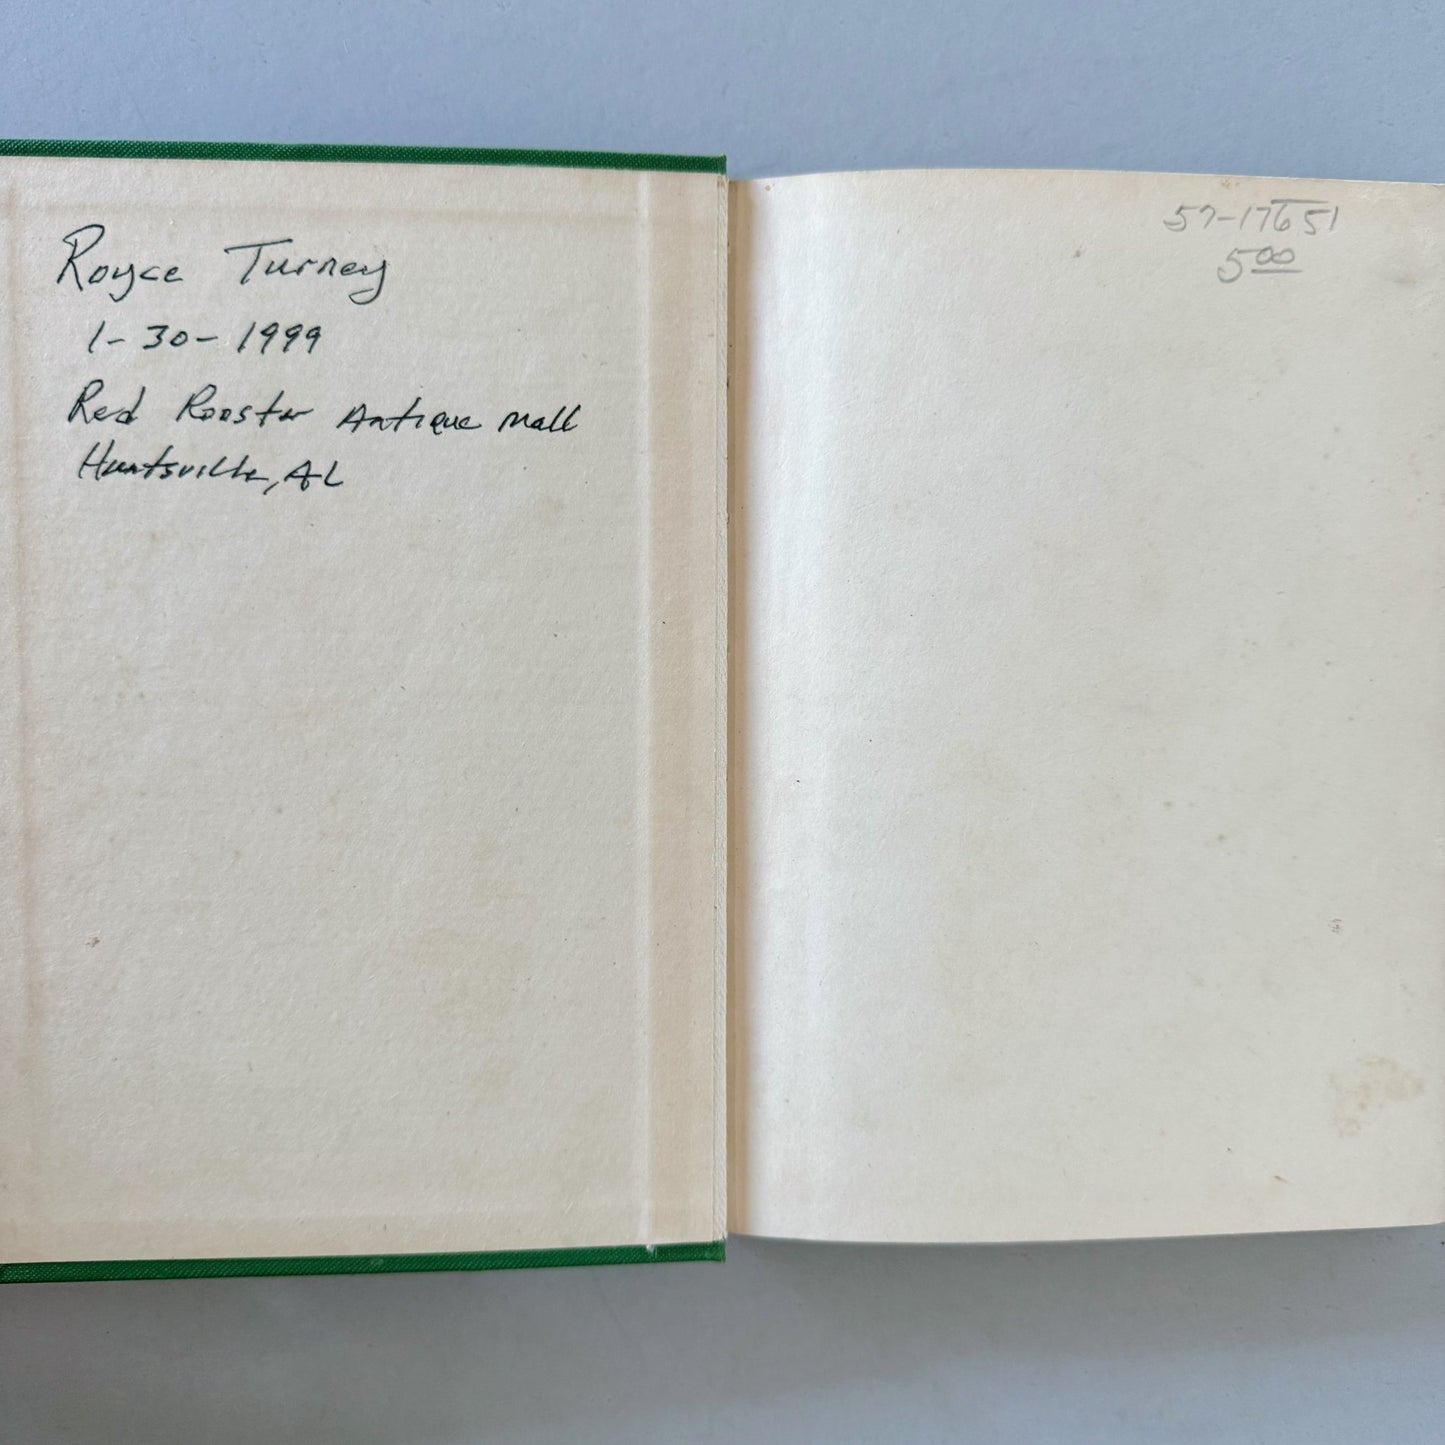 Royce Turney
1-30-1999
Red Rooster Antique Mall
Huntsville, AL
57-17651
5.00